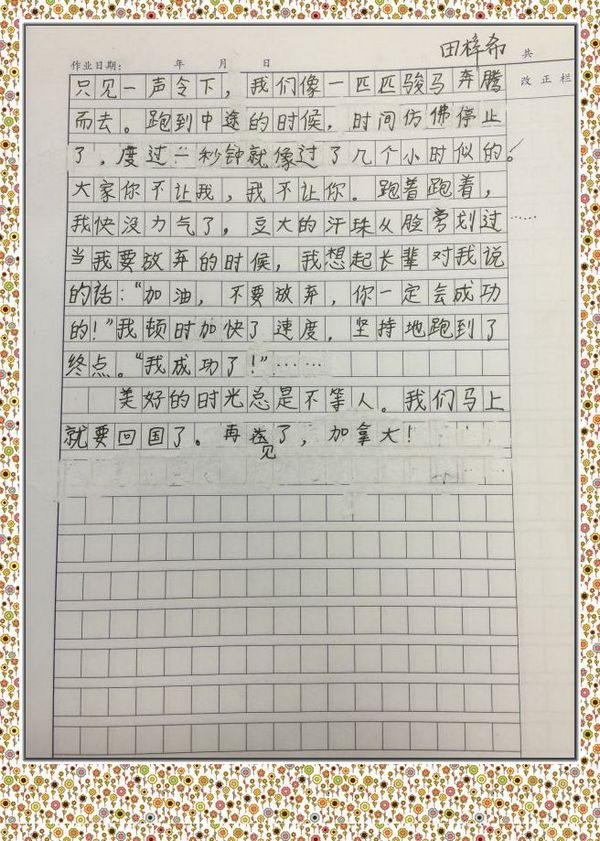 田梓希 共
作业日期： 年 月 日
改正栏
只见一声令下，我们像一匹匹骏马奔腾
而去。跑到中途的时候，时间仿佛停止
了，度过一秒钟就像过了几个小时似的。
大家你不让我，我不让你。跑着跑着，
我快没力气了，豆大的汗珠从脸旁划过……
当我要放弃的时候，我想起长辈对我说
的话：“加油，不要放弃，你一定会成功
的！”我顿时加快了速度，坚持地跑到了
终点。“我成功了！”……
美好的时光总是不等人。我们马上
就要回国了。再见了，加拿大！